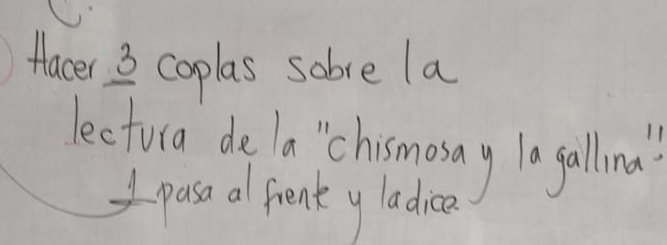 Hacer 3 coplas sobre la
lectura de la "chismosa y la gallina".
1 pasa al frente y la dice.